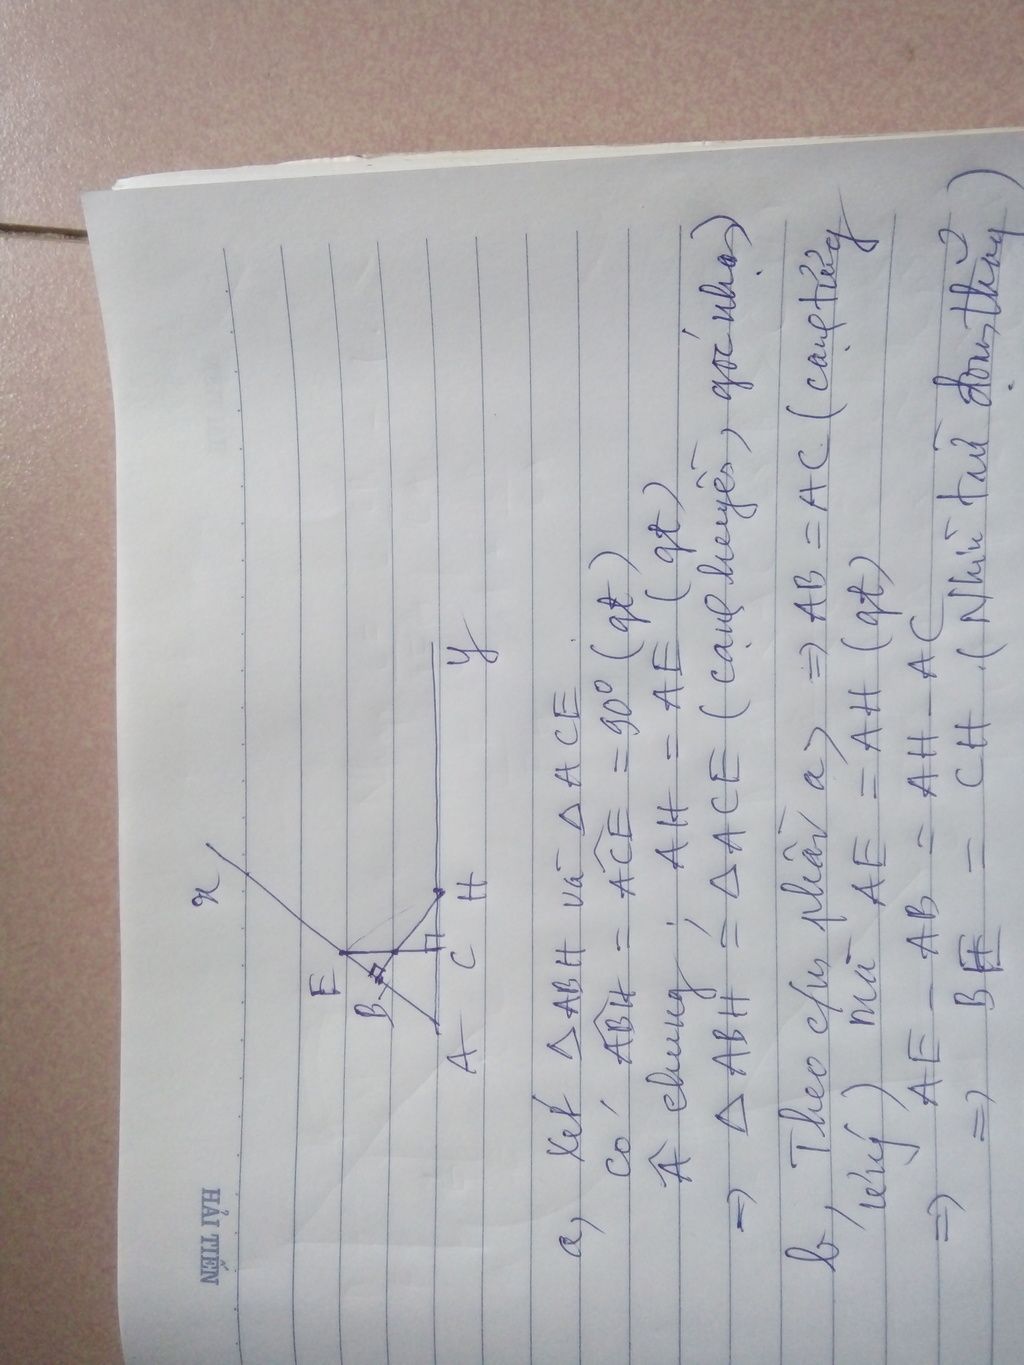 HẢI TIẾN
x
E
B
A
C
H
y
a, Xét Δ ABH và Δ ACE
có ABH = ACE = 90° (gt)
Â chung ; AH = AE (gt)
=> Δ ABH = Δ ACE (cạnh huyền, góc nhọn)
b, Theo c/m phần a, => AB = AC (cạnh tương
ứng) mà AE = AH (gt)
=> AE - AB = AH - AC
=> BE = CH (Nhìn trên đoạn thẳng)